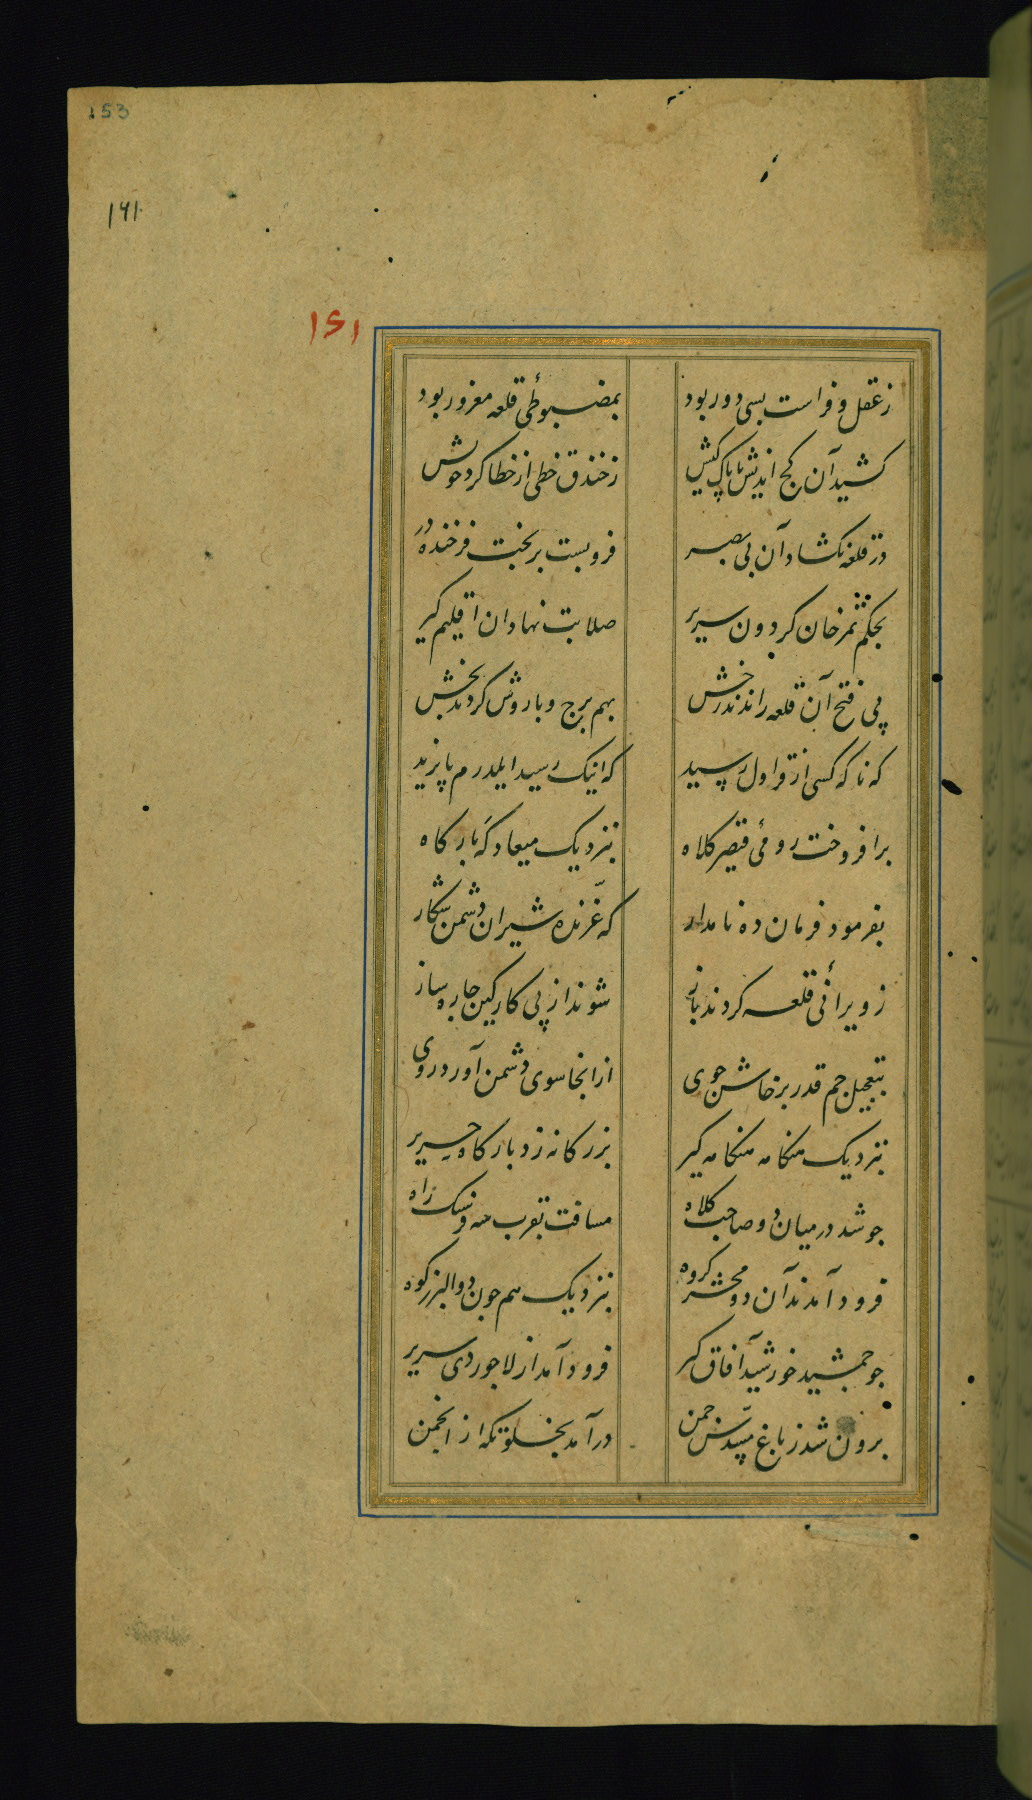 153
۱۶۱
۱۶۱
ز عقل و فراست بسی دور بود بمضبوطیٔ قلعه مغرور بود
کشید آن کج اندیش ناپاک کیش ز خندق خطی از خطا کرد خویش
در قلعه نکشاد آن بی بصر فرو بست بر بخت فرخنده در
بحکم تمرخان کردون سریر صلابت نهادان اقلیم کیر
پی فتح آن قلعه راندند رخش بهم برج و باروش کردند بخش
که ناکه کسی از قراول رسید که اینک رسید ایلدرم بایزید
برافروخت رومیٔ قیصر کلاه بنزدیک میعادکه بارکاه
بفرمود فرمان ده نامدار که غرّنده شیران دشمن شکار
ز ویرانیٔ قلعه کردند باز شوند از پی کار کین چاره ساز
بتعجیل جم قدر پرخاش جوی از انجا سوی دشمن آورد روی
بنزدیک هنکامه هنکامه کیر بزرکانه زد بارکاه حریر
چو شد در میان دو صاحب کلاه مسافت بقرب سه فرسنک راه
فرود آمدند آن دو محشر کروه بنزدیک هم چون دو البرز کوه
چو جمشید خورشید آفاق کیر فرود آمد از لاجوردی سریر
برون شد ز باغ چمن درآمد بخلوتکه از انجمن